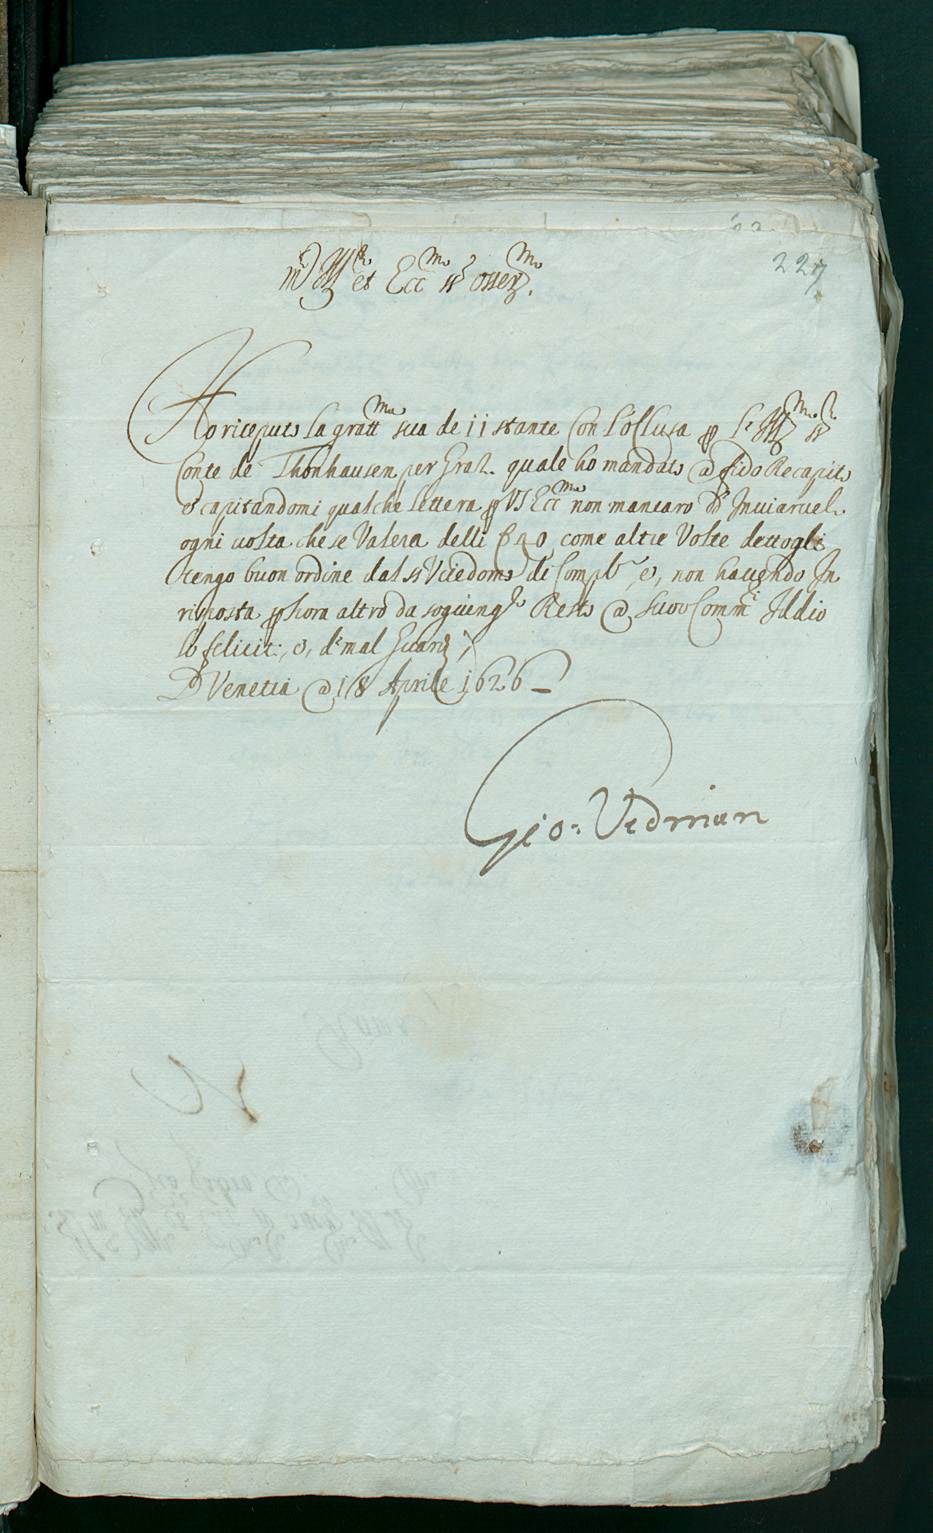 227
m.to Ill.re et Ecc.mo sr osser.mo
Ho riceputo la gratt.ma sua de 11 stante Con l'oclusa per l'Ill.mo sr
Conte de Thonhausen per Graz. quale ho mandato a fido Recapito
e capitandomi qualche lettera per VS Ecc.ma non mancaro d'Inviarvel.
ogni volta che se Valera delli come altre Volte dettogli
tengo buon ordine dal sr Vicedomo di Compl.r e, non havendo In
risposta per hora altro da sogiung.e Resto a Suoi Comm.i Iddio
lo felicit: e, di mal Guard;
Di Venetia a 18 Aprile 1626
Gio: Vidman